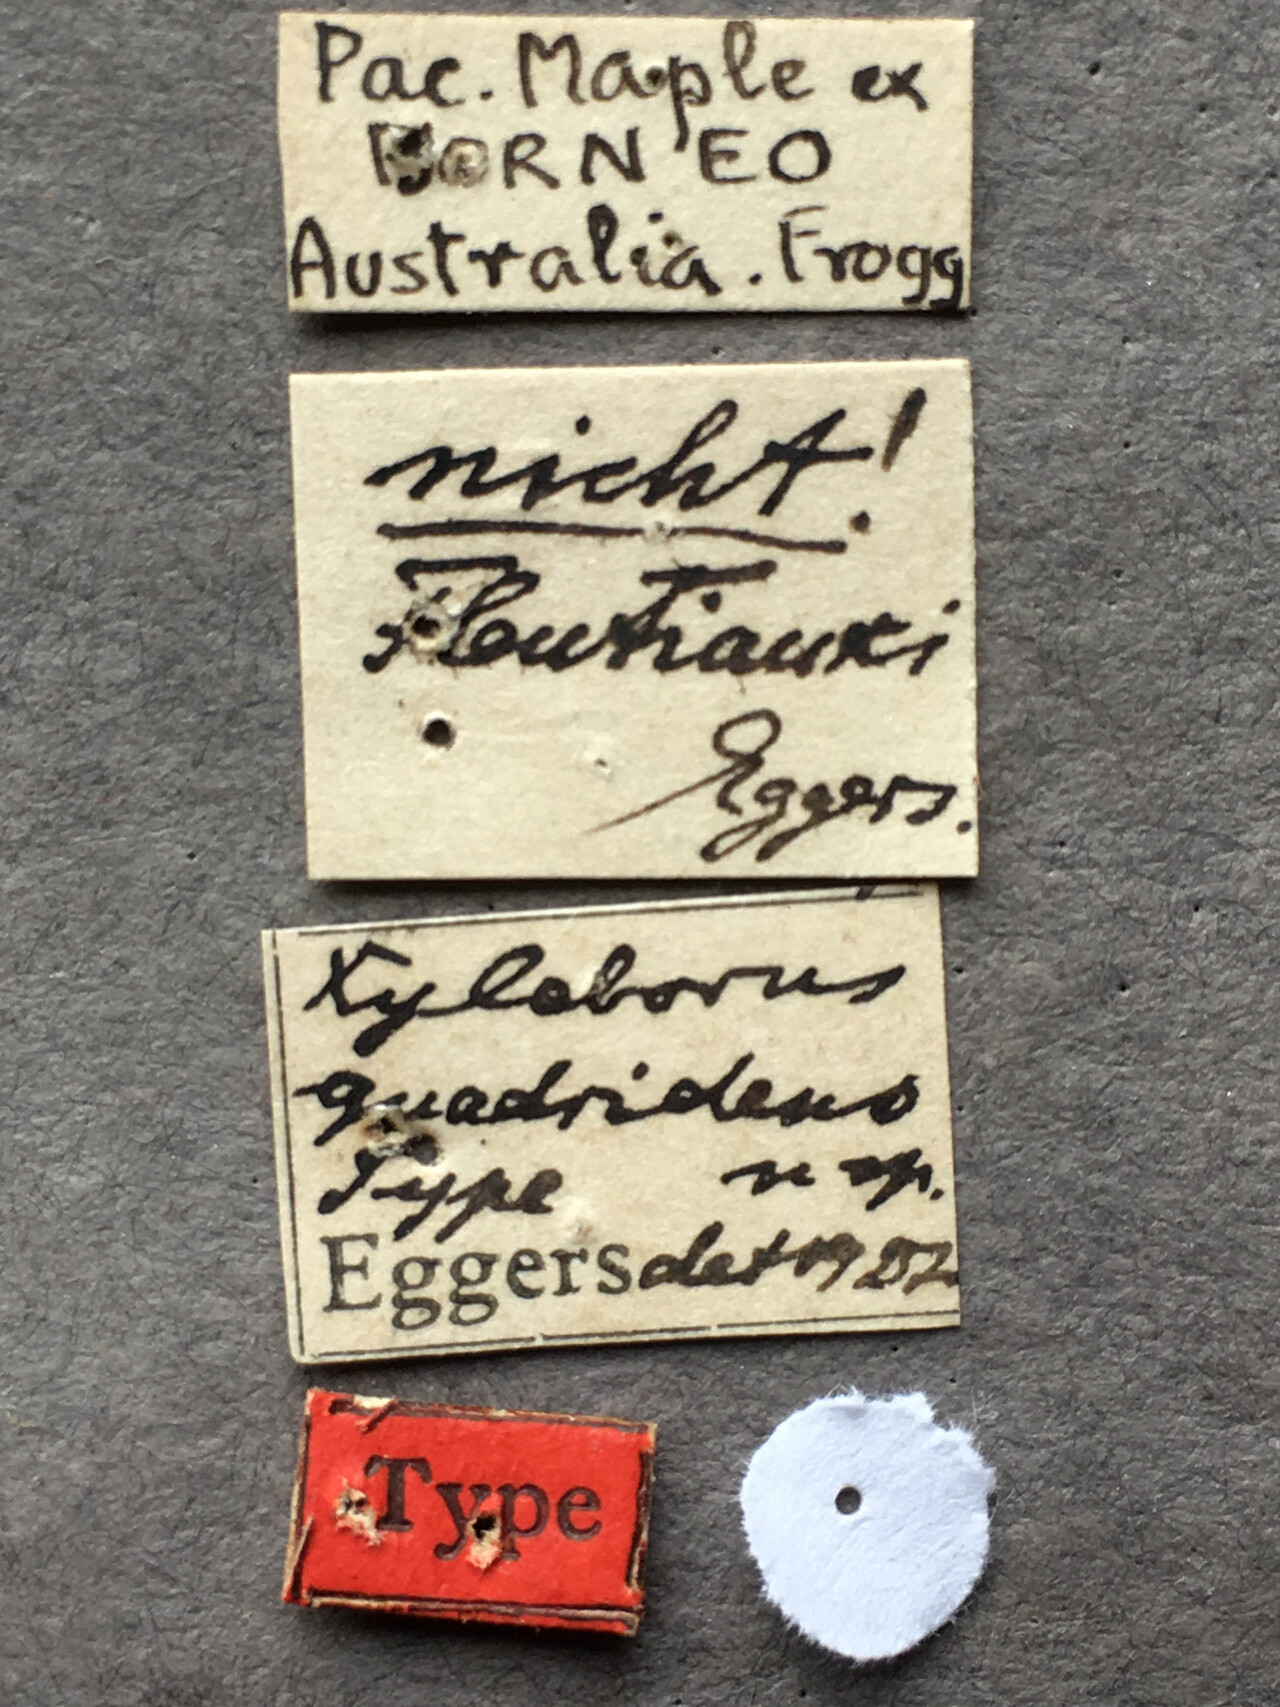 Pac. Maple ex
BORNEO
Australia. Frogg
nicht!
Eggers.
Xyleborus
quadridens
Type n sp.
Eggers det 19
Type